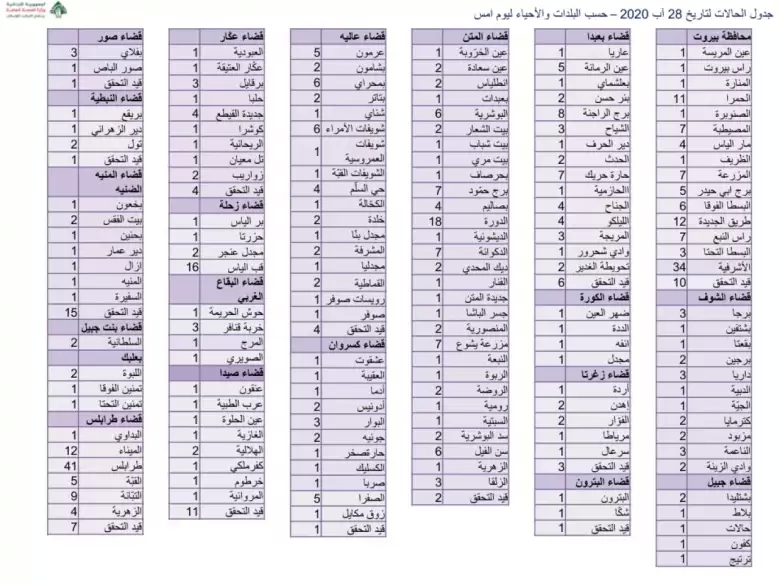 جدول الحالات لتاريخ 28 آب 2020 – حسب البلدات والأحياء ليوم امس
محافظة بيروت
عين المريسة 1
راس بيروت 1
المنارة 1
الحمرا 11
الصنوبرة 1
المصيطبة 7
مار الياس 4
الظريف 1
المزرعة 7
برج ابي حيدر 5
البسطا الفوقا 6
طريق الجديدة 12
راس النبع 7
البسطا التحتا 3
الأشرفية 34
قيد التحقق 10
قضاء الشوف
برجا 3
بشتفين 1
بقعتا 1
برجين 2
داريا 3
الدبية 1
الجيّة 1
كترمايا 2
مزبود 2
الناعمة 3
وادي الزينة 2
قضاء جبيل
بشتليدا 2
بلاط 1
حالات 1
كفون 1
ترتيج 1
قضاء بعبدا
عاريا 1
عين الرمانة 5
بعلشماي 1
بئر حسن 2
برج الراجنة 8
الشياح 3
دير الحرف 1
الحدث 2
حارة حريك 7
االحازمية 1
الجناح 4
الليلكو 4
المريجة 3
وادي شحرور 1
تحويطة الغدير 2
قيد التحقق 6
قضاء الكورة
ضهر العين 1
الددة 1
انفه 1
مجدل 1
قضاء زغرتا
أردة 1
إهدن 2
الفوّار 2
مرياطا 1
سرعال 1
قيد التحقق 3
قضاء البترون
البترون 1
شكّا 1
قيد التحقق 1
قضاء المتن
عين الخرّوبة 1
عين سعادة 2
انطلياس 2
بعبدات 1
البوشرية 6
بيت الشعار 2
بيت شباب 1
بيت مري 1
بحرصاف 1
برج حمّود 7
بصاليم 4
الدورة 18
الديشونية 1
الدكوانة 7
ديك المحدي 2
الفنار 1
جديدة المتن 1
جسر الباشا 1
المنصورية 2
مزرعة يشوع 7
النبعة 1
الربوة 1
الروضة 2
رومية 1
السبتية 1
سد البوشرية 2
سن الفيل 6
الزهرية 1
الزلقا 3
قيد التحقق 2
قضاء عاليه
عرمون 5
بشامون 2
بمحراي 6
بتاتر 2
شناي 1
شويفات الأمراء 6
شويفات
العمروسية 1
الشويفات القبّة 1
حي السلّم 4
الكحّالة 1
خلدة 2
مجدل بنّا 1
المشرفة 2
مجدليا 1
القماطية 2
رويسات صوفر 1
صوفر 1
قيد التحقق 4
قضاء كسروان
عشقوت 1
العقيبة 1
أدما 1
أدونيس 2
البوار 3
جونيه 2
حارةصخر 1
الكسليك 1
صربا 1
الصفرا 5
زوق مكايل 1
قيد التحقق 1
قضاء عكّار
العبودية 1
عكّار العتيقة 1
برقايل 3
حلبا 1
جديدة القيطع 4
كوشرا 1
الريحانية 1
تل معيان 1
زواريب 2
قيد التحقق 4
قضاء زحلة
بر الياس 1
حزرتا 1
مجدل عنجر 2
قب الياس 16
قضاء البقاع
الغربي
حوش الحريمة 1
خربة قنافر 3
المرج 1
الصويري 1
قضاء صيدا
عنقون 1
عرب الطبية 1
عين الحلوة 1
الغازية 1
الهلالية 2
كفرملكي 1
خرطوم 1
المروانية 1
قيد التحقق 11
قضاء صور
بفلاي 3
صور الباص 1
قيد التحقق 1
قضاء النبطية
بريقع 1
دير الزهراني 1
تول 2
قيد التحقق 1
قضاء المنيه
الضنيه
بخعون 1
بيت الفقس 2
بحنين 1
دير عمار 1
ازال 1
المنيه 1
السفيرة 1
قيد التحقق 15
قضاء بنت جبيل
السلطانية 2
بعلبك
اللبوة 2
تمنين الفوقا 1
تمنين التحتا 1
قضاء طرابلس
البداوي 1
الميناء 12
طرابلس 41
القبّة 5
التبّانة 9
الزهرية 4
قيد التحقق 7